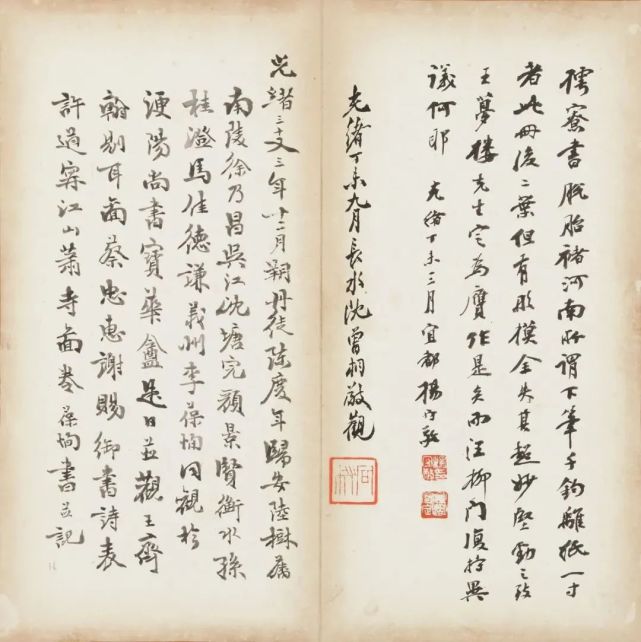 樗寮書脫胎褚河南所謂下筆千鈞離紙一寸
者此冊後二葉但有形摸全失其超妙堅勁之致
王夢樓先生定為贗作是矣而汪柳門復持異
議何耶 光緒丁未三月宜都楊守敬
光緒丁未九月長水沈曾桐敬觀
光緒三十又三年十二月朔丹徒陳慶年歸安陸樹藩
南陵徐乃昌吳江沈塘完顏景賢衡水孫
桂澂馬佳德謙義州李葆恂同觀於
浭陽尚書寶華盦是日並觀王齊
翰剔耳圖蔡忠惠謝賜御書詩表
許道寧江山蕭寺圖卷葆恂書並記